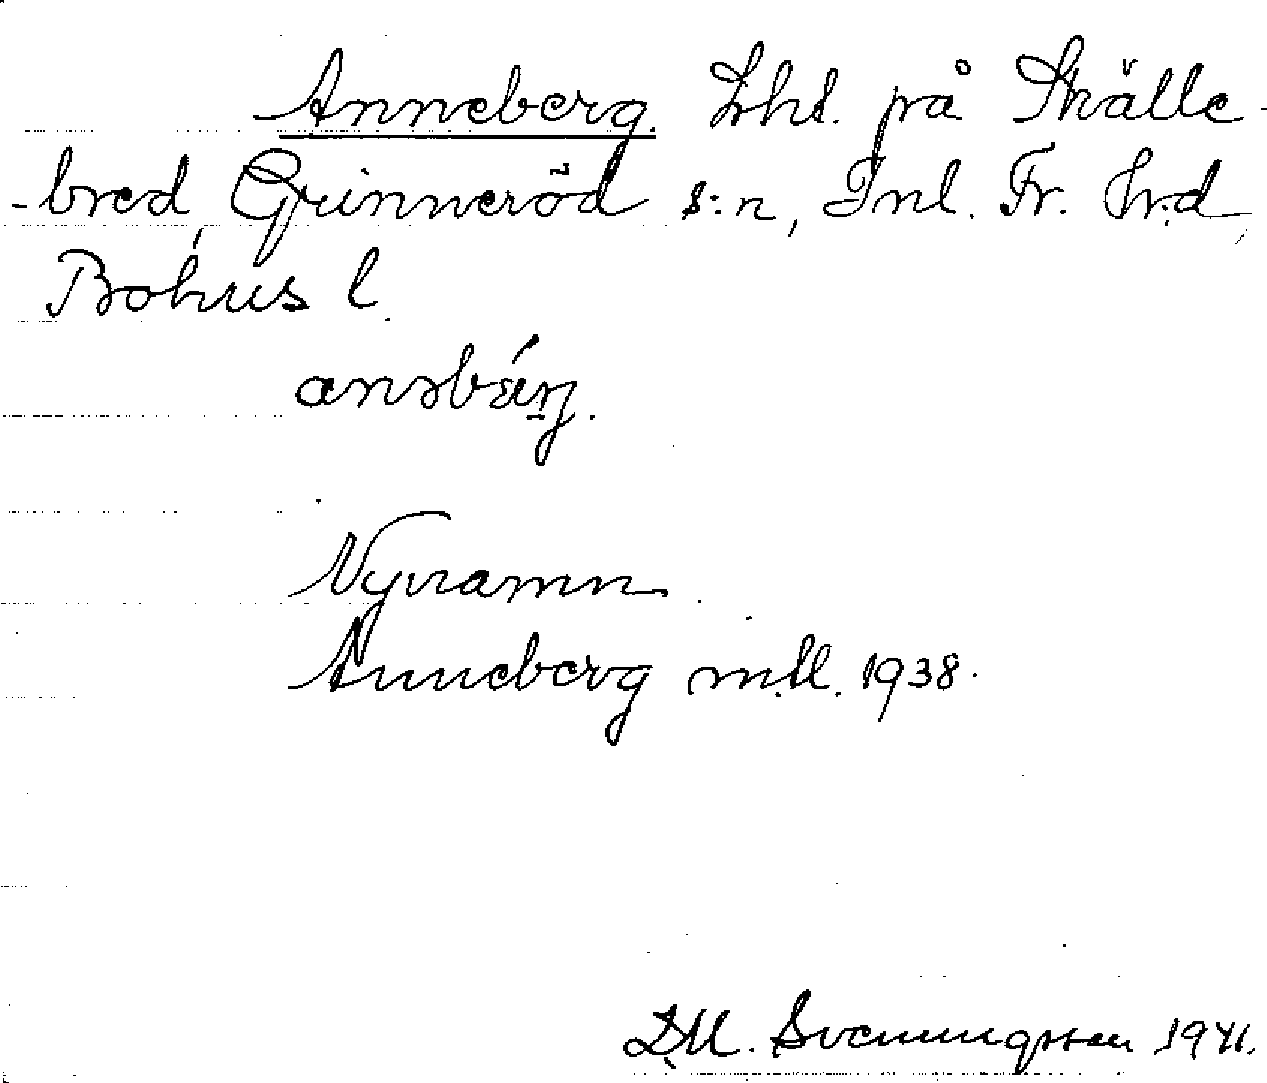 Anneberg. Lht. på Skälle-
-bred, Grinneröd s:n, Inl. Fr. Hrd,
Bohus l.
anəbǽrj.
Nynamn.
Anneberg m.bl. 1938.
D.M. Svenningsson 1941.